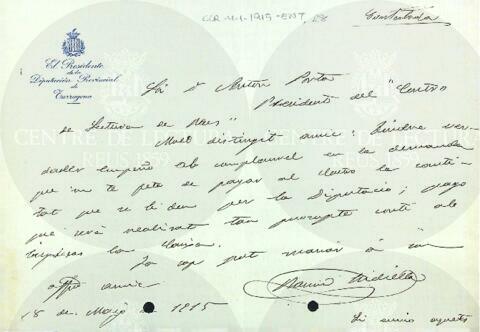 CCR 11-1-1915-ENT 28
Contestada
El Presidente
de la
Diputación Provincial
de
Tarragona
Sr. D. Anton Porta
President del "Centro
de Lectura de Reus"
Molt distingit amic: Tindré ver-
dader empeño en complaurel en la demanda
que me fa de pagar al Centro la canti-
tat que se li deu per la Diputació; pago
que será realisat tan prompte conti ab
la Caixa.
Ja cap pot manar á son
affm amic
18 de Mayo 1915
Li envio aquets
CENTRE DE LECTURA
REUS 1859
CENTRE DE LECTURA
REUS 1859